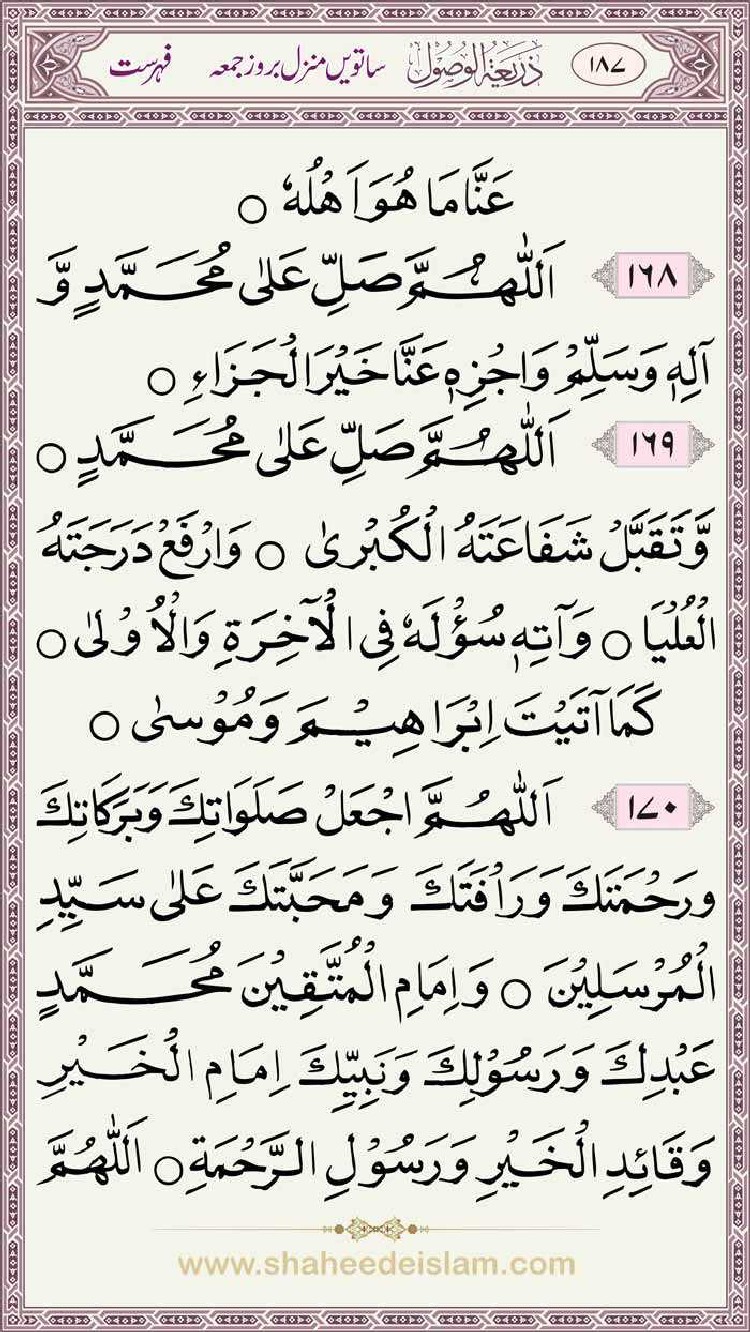 ١٨٧ ذَرِيعَةُ الْوُصُوْل ساتویں منزل بروز جمعہ فہرست
عَنَّا مَا هُوَ اَهْلُهٗ ○
١٦٨ اَللّٰهُمَّ صَلِّ عَلٰى مُحَمَّدٍ وَّ
آلِهٖ وَسَلِّمْ وَاجْزِهٖ عَنَّا خَيْرَ الْجَزَاءِ ○
١٦٩ اَللّٰهُمَّ صَلِّ عَلٰى مُحَمَّدٍ ○
وَّتَقَبَّلْ شَفَاعَتَهُ الْكُبْرىٰ ○ وَارْفَعْ دَرَجَتَهُ
الْعُلْيَا ○ وَآتِهٖ سُؤْلَهٗ فِى الْآخِرَةِ وَالْاُوْلٰى ○
كَمَا آتَيْتَ اِبْرَاهِيْمَ وَمُوْسىٰ ○
١٧٠ اَللّٰهُمَّ اجْعَلْ صَلَوَاتِكَ وَبَرَكَاتِكَ
ورَحْمَتَكَ وَرَاْفَتَكَ وَمَحَبَّتَكَ عَلىٰ سَيِّدِ
الْمُرْسَلِيْنَ ○ وَاِمَامِ الْمُتَّقِيْنَ مُحَمَّدٍ
عَبْدِكَ وَرَسُوْلِكَ وَنَبِيِّكَ اِمَامِ الْخَيْرِ
وَقَائِدِ الْخَيْرِ وَرَسُوْلِ الرَّحْمَةِ ○ اَللّٰهُمَّ
www.shaheedeislam.com